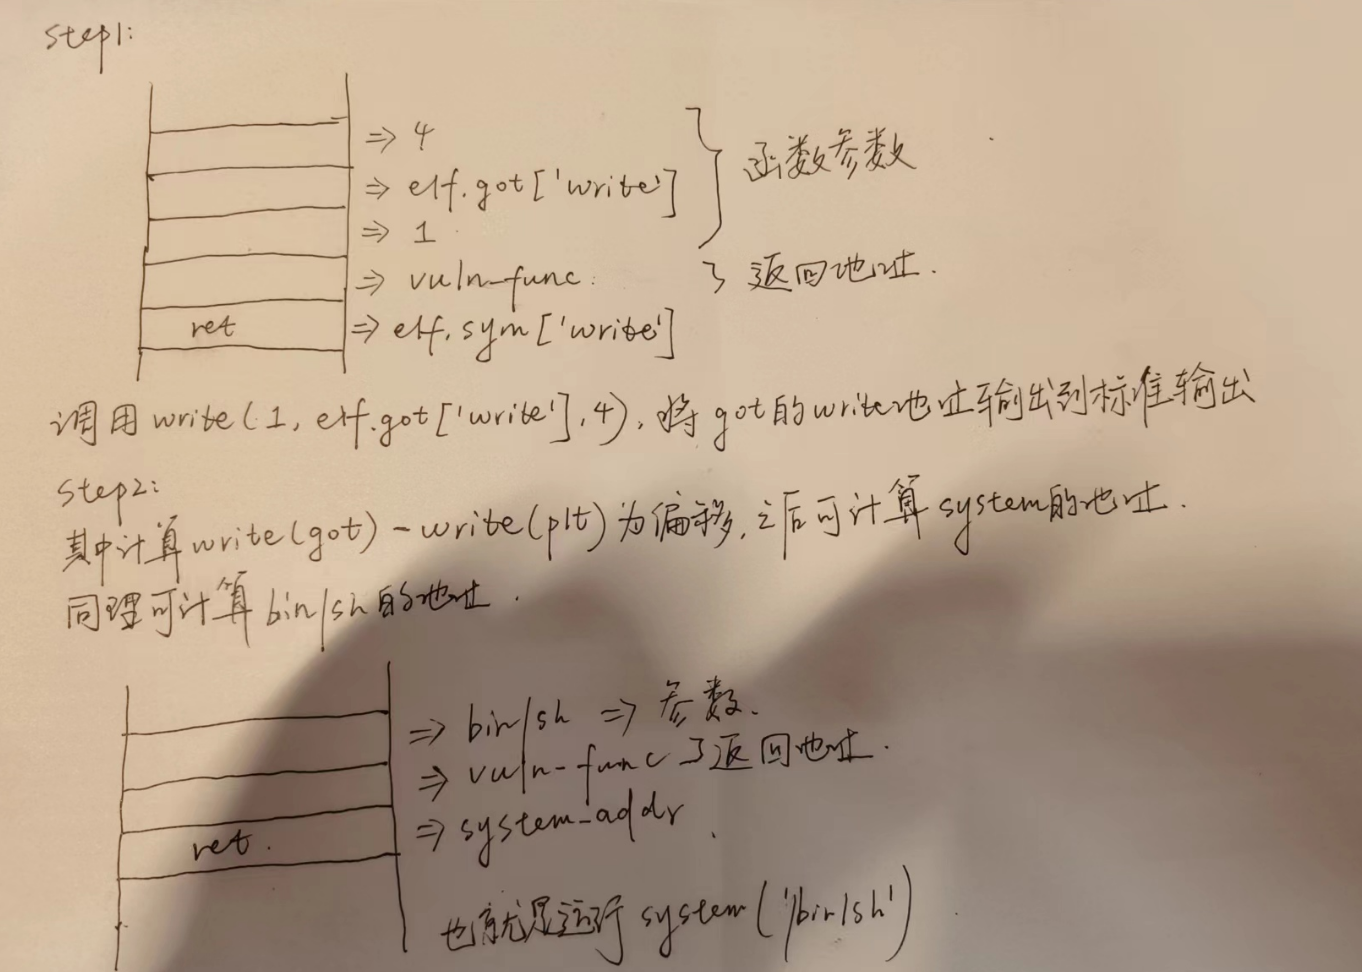 step1:
⇒ 4
⇒ elf.got['write']
函数参数
⇒ 1
⇒ vuln_func
返回地址.
ret ⇒ elf.sym['write']
调用write(1, elf.got['write'],4),将got的write地址输出到标准输出
step2:
其中计算write(got)-write(plt)为偏移,之后可计算system的地址.
同理可计算bin/sh的地址.
⇒ bin/sh ⇒ 参数.
⇒ vuln-func 返回地址.
ret. ⇒ system_addr
也就是运行system('/bin/sh')